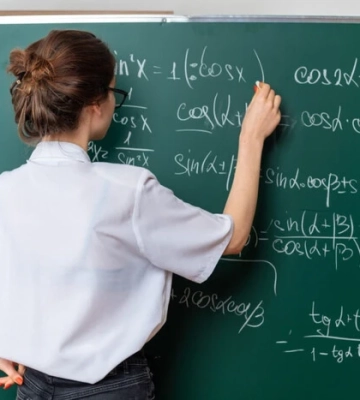 in²x = 1 (:cosx) cos2α
1
cosx
cos(α+ = cosα·c
1
sin²x
sin(α±β = sinα·cosβ±s
) = sin(α+β)
cos(α+β)
+ 2cosαcosβ
= tgα+t
1-tgα